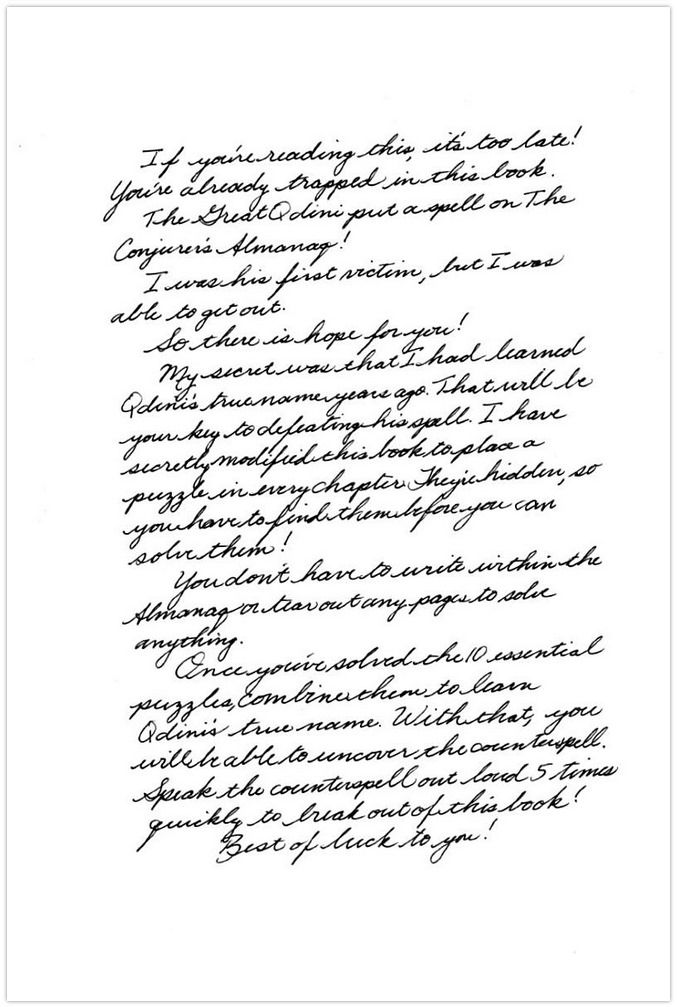 If you're reading this, it's too late!
You're already trapped in this book.
The Great Qdini put a spell on The
Conjurer's Almanaq!
I was his first victim, but I was
able to get out.
So there is hope for you!
My secret was that I had learned
Qdini's true name years ago. That will be
your key to defeating his spell. I have
secretly modified this book to place a
puzzle in every chapter. They're hidden, so
you have to find them before you can
solve them!
You don't have to write within the
Almanaq or tear out any pages to solve
anything.
Once you've solved the 10 essential
puzzles, combine them to learn
Qdini's true name. With that, you
will be able to uncover the counterspell.
Speak the counterspell out loud 5 times
quickly to break out of this book!
Best of luck to you!